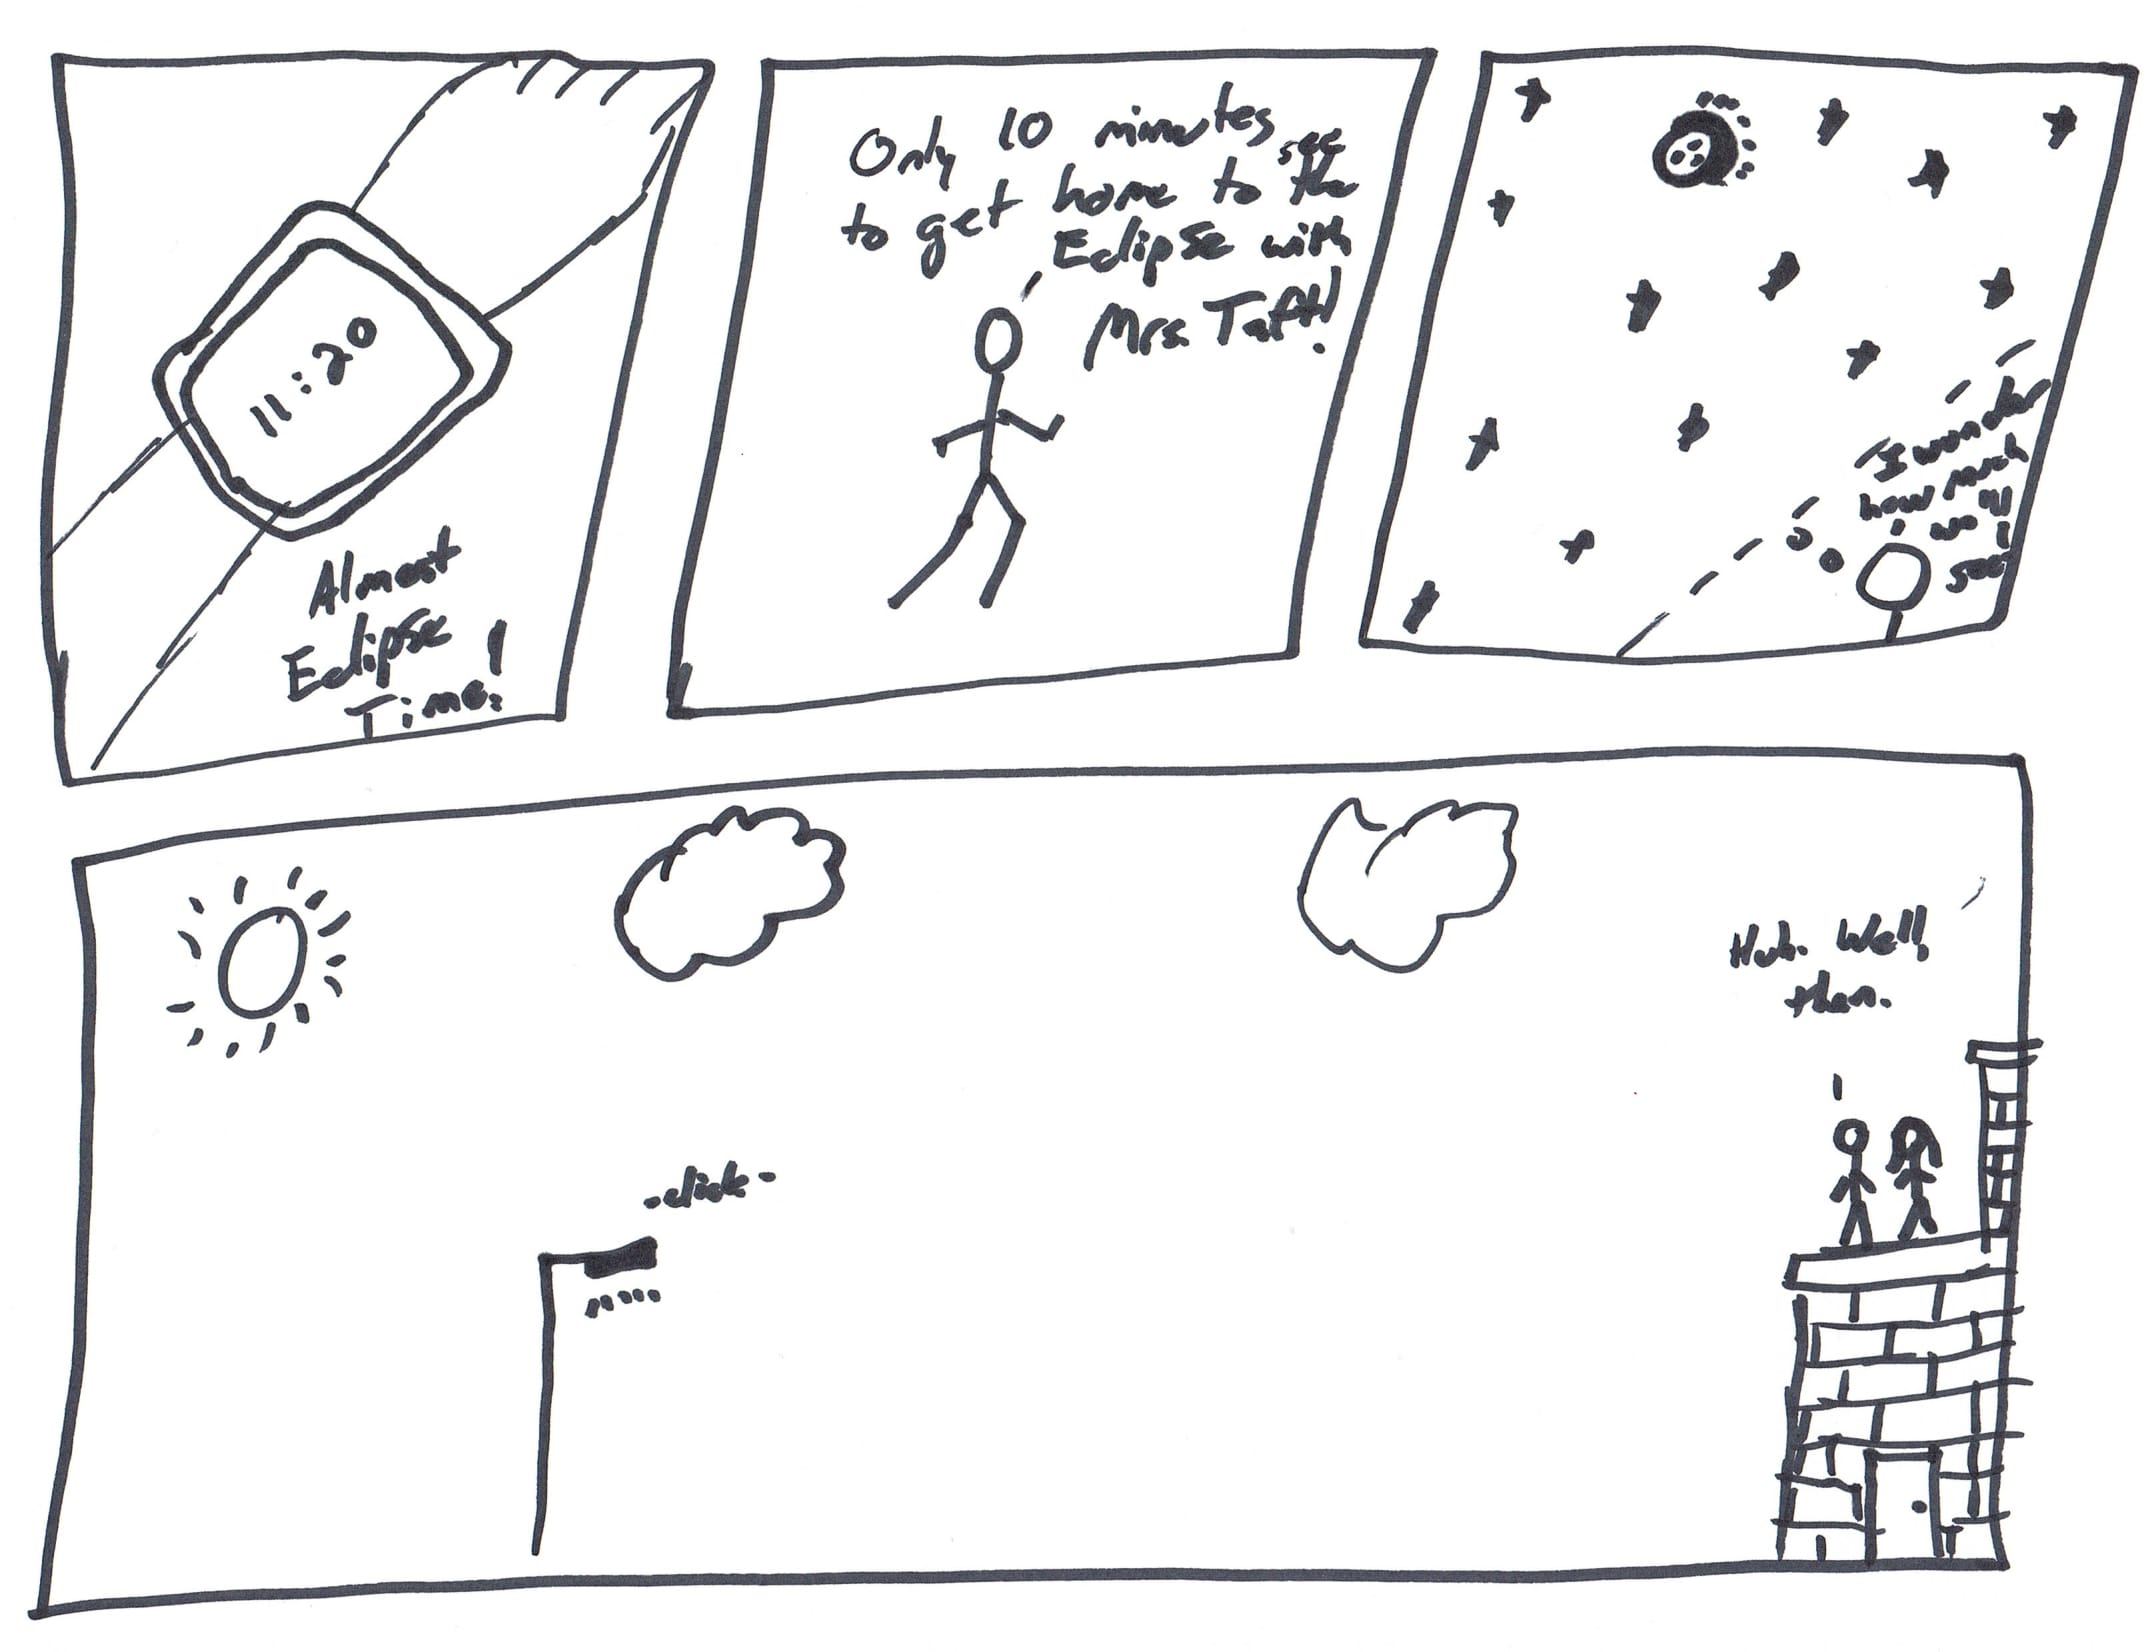 11:20
Almost
Eclipse
Time!
Only 10 minutes see
to get home to the
Eclipse with
Mrs. Taft!
I wonder
how much
we'll
see!
Huh. Well
then.
-click-